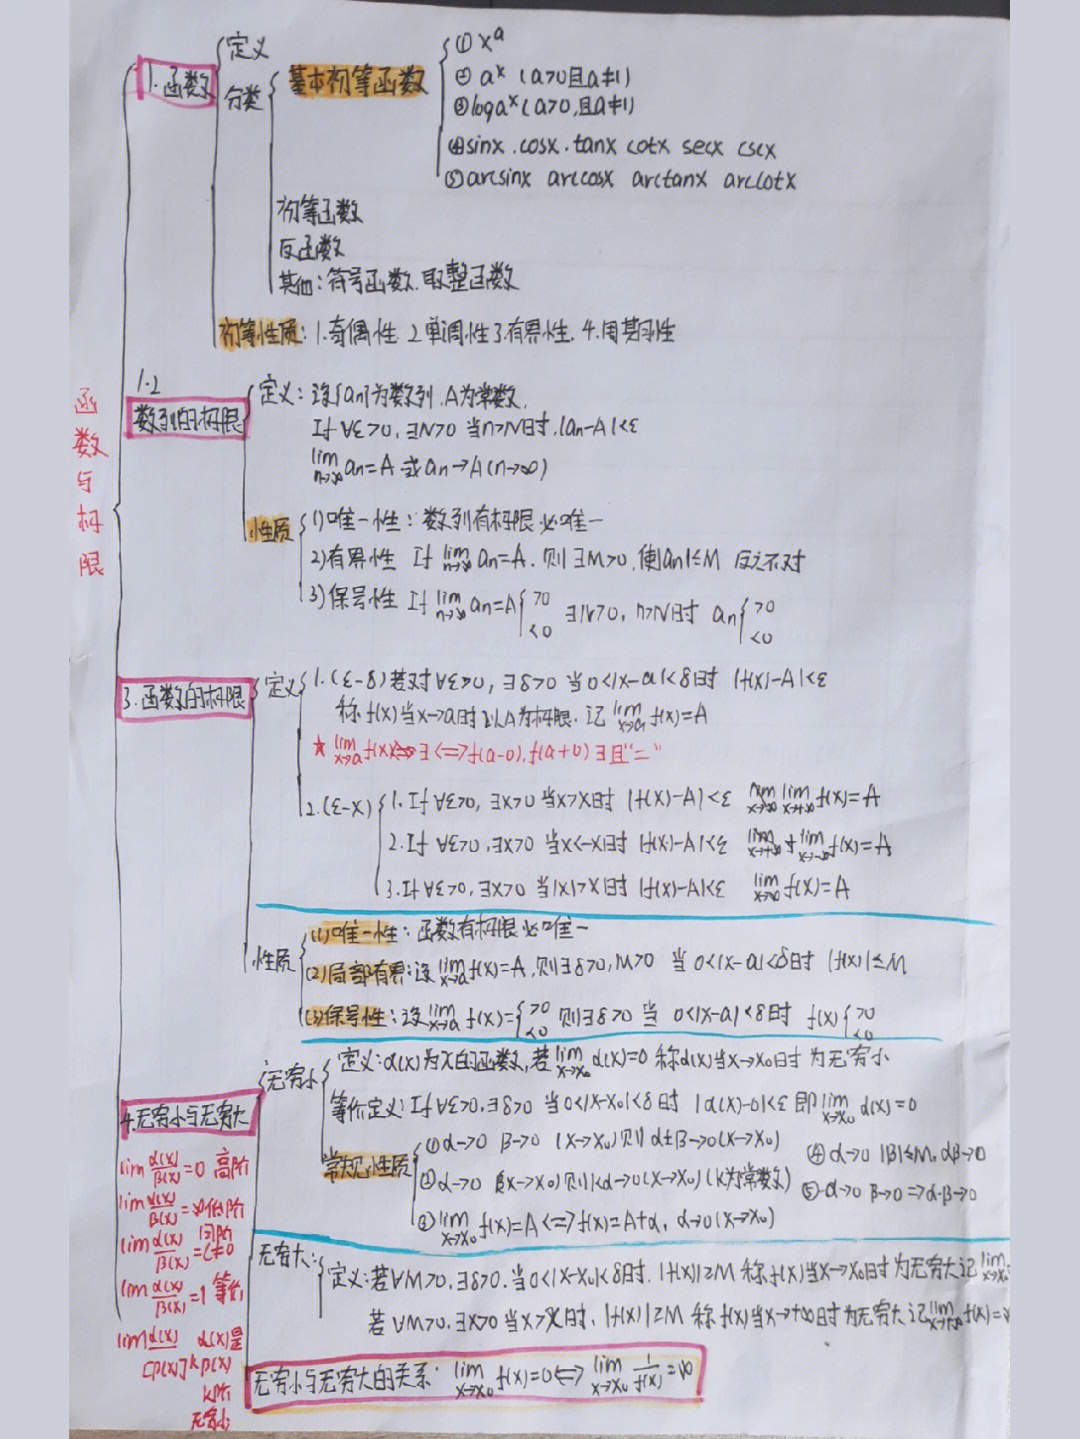 函数与极限
1. 函数
定义
分类
基本初等函数
① xᵃ
② aˣ (a>0且a≠1)
③ logaˣ (a>0,且a≠1)
④ sinx .cosx. tanx cotx secx cscx
⑤ arcsinx arccosx arctanx arccotx
初等函数
反函数
其他：符号函数.取整函数
初等性质：1.奇偶性 2.单调性 3.有界性. 4.周期性
1.2
数列的极限
定义：设{an}为数列.A为常数.
If ∀ε>0,∃N>0 当n>N时,|an-A|<ε
lim n→∞ an=A 或 an→A(n→∞)
性质
(1)唯一性：数列有极限必唯一
2)有界性 If lim n→∞ an=A. 则∃M>0,使|an|≤M 反之不对
3)保号性 If lim n→∞ an=A{>0 <0 ∃N>0, n>N时 an{>0 <0
3.函数的极限
定义
1.(ε-δ)若对∀ε>0,∃δ>0 当0<|x-a|<δ时 |f(x)-A|<ε
称f(x)当x→a时以A为极限.记 lim x→a f(x)=A
★ lim x→a f(x) ∃<=>f(a-0),f(a+0)∃且"="
2.(ε-X)
1.If ∀ε>0,∃X>0 当x>X时 |f(x)-A|<ε lim x→+∞ f(x)=A
2.If ∀ε>0,∃X>0 当x<-X时 |f(x)-A|<ε lim x→-∞ f(x)=A
3.If ∀ε>0,∃X>0 当|x|>X时 |f(x)-A|<ε lim x→∞ f(x)=A
性质
(1)唯一性：函数有极限必唯一
(2)局部有界：设 lim x→a f(x)=A,则∃δ>0,M>0 当0<|x-a|<δ时 |f(x)|≤M
(3)保号性：设 lim x→a f(x)={>0 <0 则∃δ>0 当 0<|x-a|<δ时 f(x){>0 <0
4.无穷小与无穷大
无穷小
定义:α(x)为x的函数,若 lim x→x₀ α(x)=0 称α(x)当x→x₀时为无穷小
等价定义:If ∀ε>0.∃δ>0 当0<|x-x₀|<δ时 |α(x)-0|<ε 即 lim x→x₀ α(x)=0
常规性质
①α→0 β→0 (x→x₀)则α±β→0(x→x₀)
②α→0 (x→x₀)则kα→0(x→x₀)(k为常数)
③ lim x→x₀ f(x)=A<=>f(x)=A+α, α→0(x→x₀)
④α→0 |β|≤M, αβ→0
⑤α→0 β→0=>α·β→0
lim α(x)/β(x)=0 高阶
lim α(x)/β(x)=∞低阶
lim α(x)/β(x)=C≠0 同阶
lim α(x)/β(x)=1 等价
lim α(x)/[β(x)]ᵏ α(x)是β(x)
k阶
无穷小
无穷大：
定义：若∀M>0.∃δ>0.当0<|x-x₀|<δ时.|f(x)|≥M 称f(x)当x→x₀时为无穷大记 lim x→x₀
若∀M>0.∃X>0 当x>X时.|f(x)|≥M 称f(x)当x→+∞时为无穷大记 lim x→+∞ f(x)=∞
无穷小与无穷大的关系：lim x→x₀ f(x)=0<=> lim x→x₀ 1/f(x)=∞